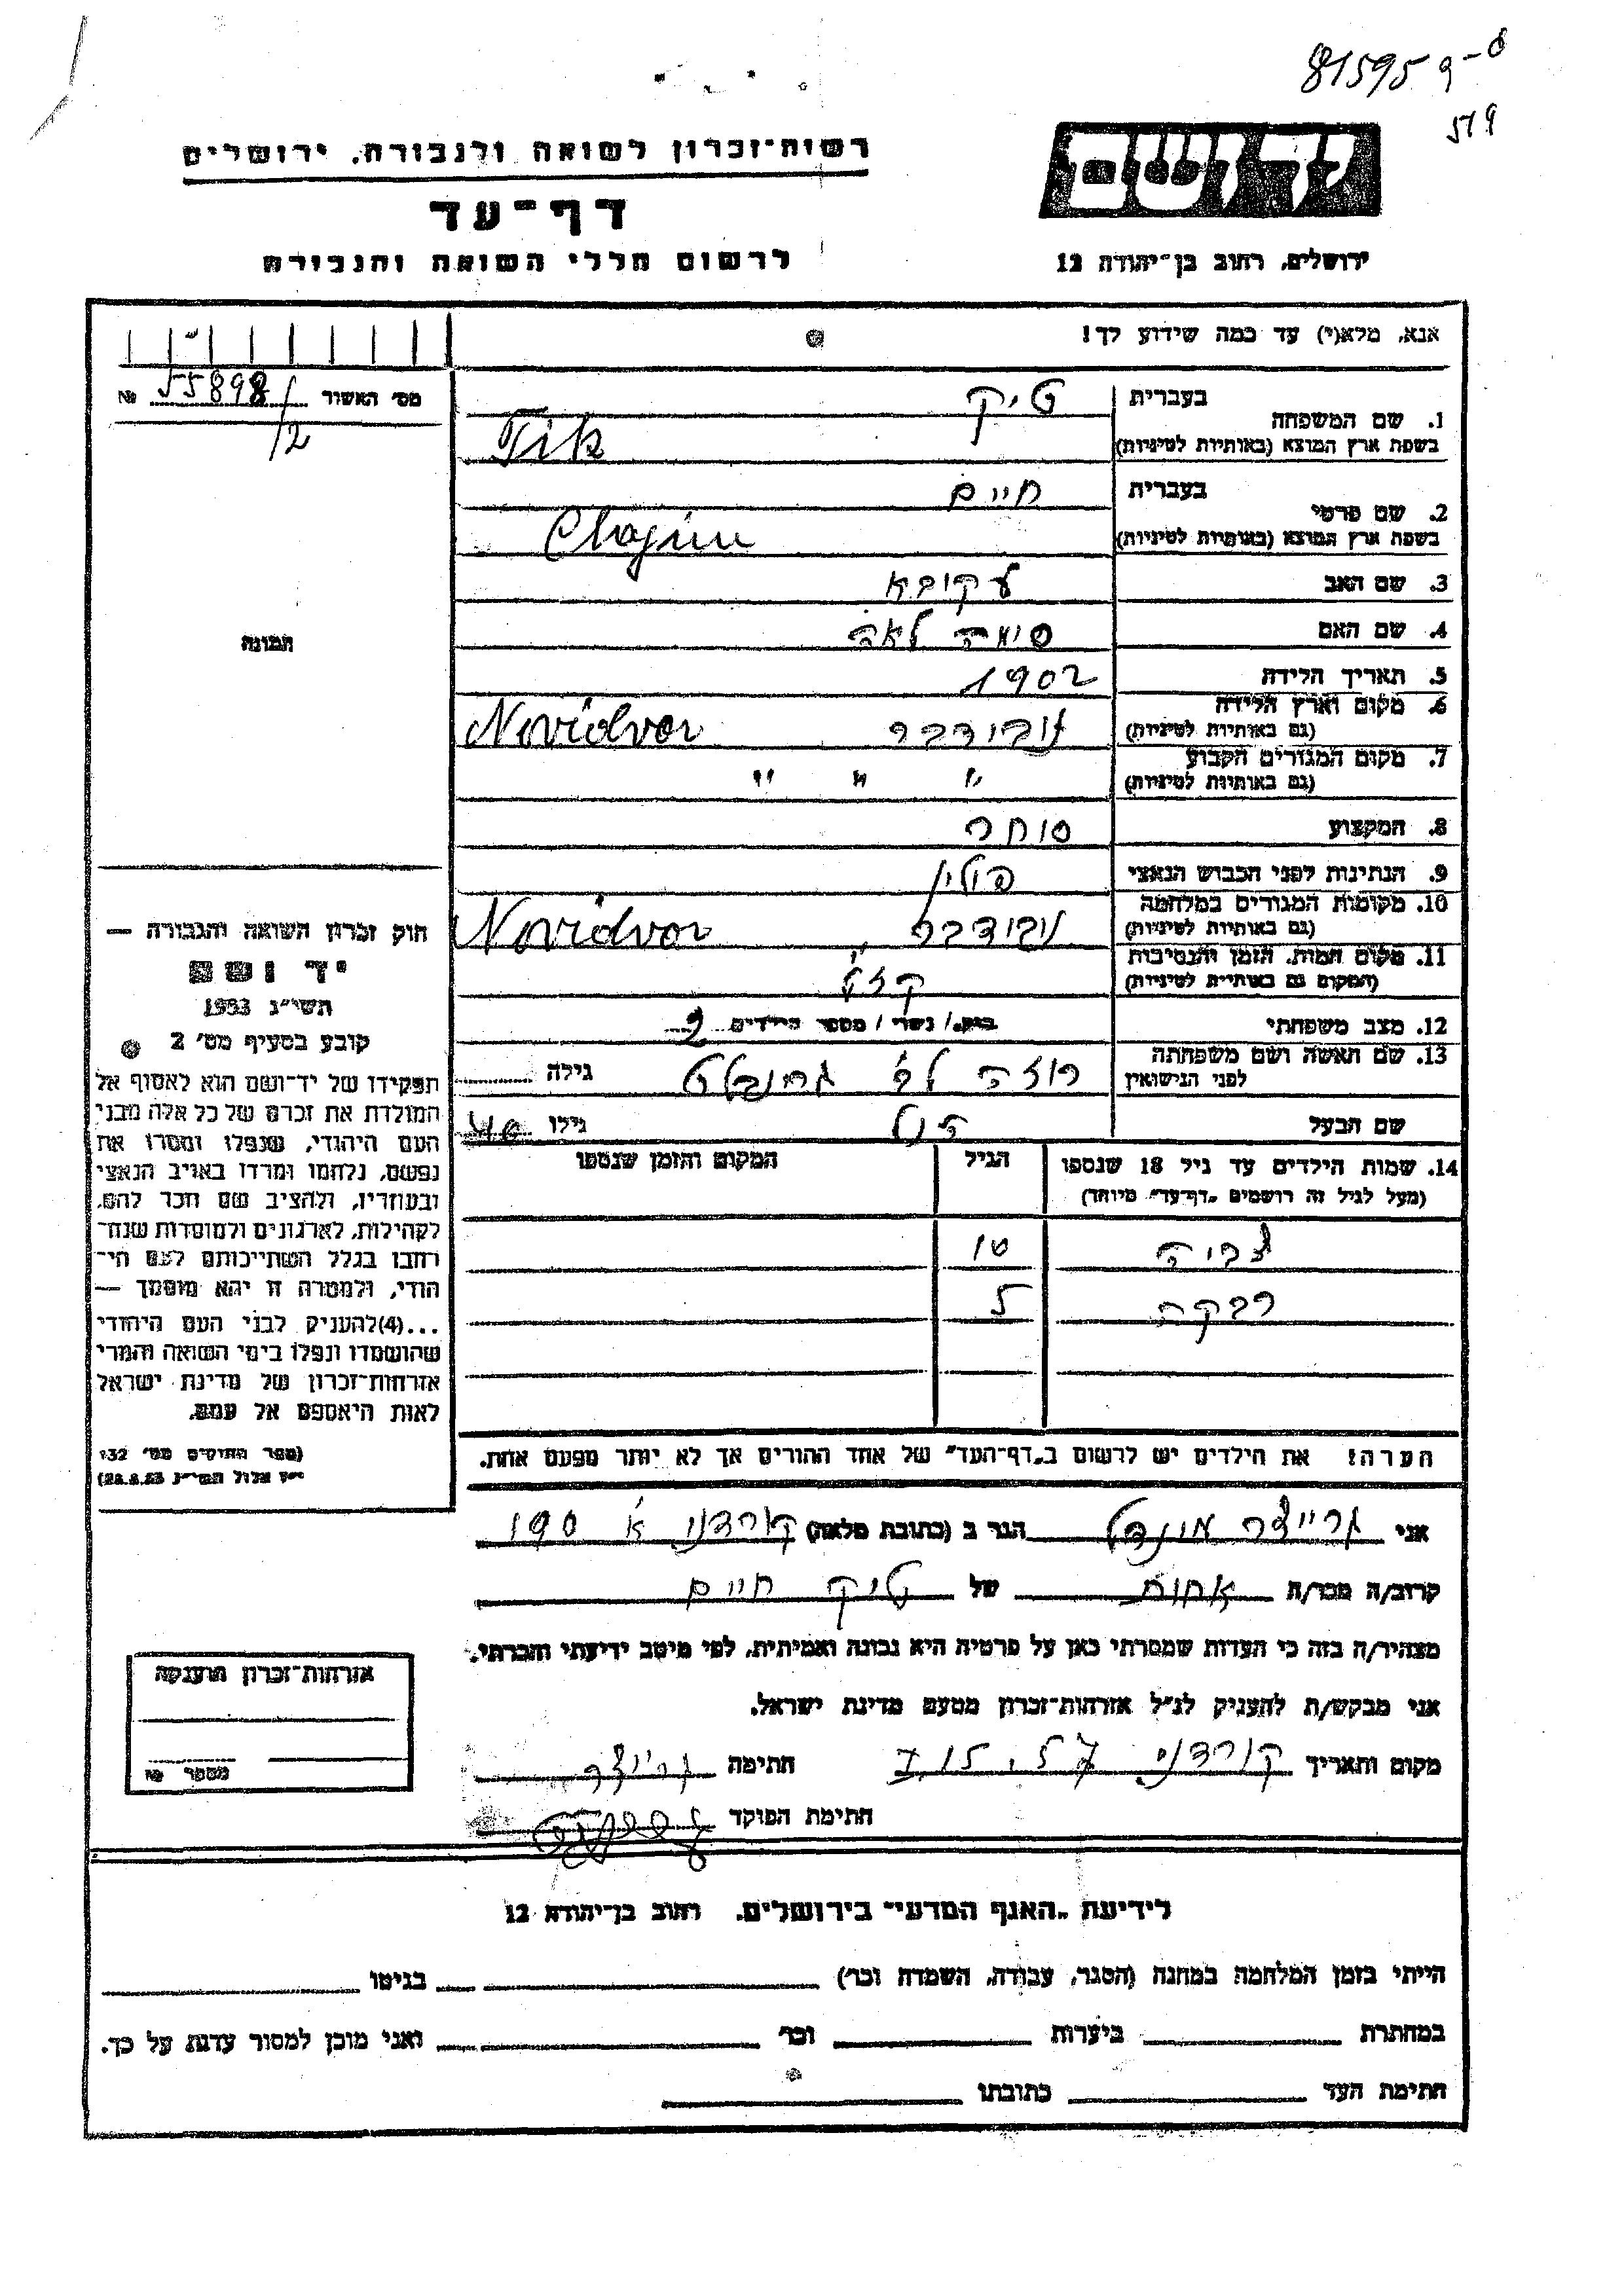 81595 9-8
519
רשות־זכרון לשואה ולגבורה, ירושלים
דף־עד
לרשום חללי השואה והגבורה
יד ושם
ירושלים, רחוב בן־יהודה 12
אנא, מלא(י) עד כמה שידוע לך!
מס׳ האשור 55898/12 №
תמונה
1. שם המשפחה
בעברית טיק
בשפת ארץ המוצא (באותיות לטיניות) Tik
2. שם פרטי
בעברית חיים
בשפת ארץ המוצא (באותיות לטיניות) Chajim
3. שם האב עקיבא
4. שם האם סימה לאה
5. תאריך הלידה 1902
6. מקום וארץ הלידה נובידבר Novidvor
(גם באותיות לטיניות)
7. מקום המגורים הקבוע " " "
(גם באותיות לטיניות)
8. המקצוע סוחר
9. הנתינות לפני הכבוש הנאצי פולין
10. מקומות המגורים במלחמה נובידבר Novidvor
(גם באותיות לטיניות)
11. מקום המות, הזמן והנסיבות
(המקום גם באותיות לטיניות)
12. מצב משפחתי רווק/ נשוי/ מספר הילדים 2
13. שם האשה ושם משפחתה רוזה לב׳ גרינבלט גילה
לפני הנישואין
שם הבעל הנ״ל גילו 40
14. שמות הילדים עד גיל 18 שנספו הגיל המקום והזמן שנספו
(מעל לגיל זה רושמים „דף־עד״ מיוחד)
צביה 10
רבקה 5
הערה! את הילדים יש לרשום ב„דף־העד״ של אחד ההורים אך לא יותר מפעם אחת.
חוק זכרון השואה והגבורה —
יד ושם
תשי״ג 1953
קובע בסעיף מס׳ 2
תפקידו של יד־ושם הוא לאסוף אל
המולדת את זכרם של כל אלה מבני
העם היהודי, שנפלו ומסרו את
נפשם, נלחמו ומרדו באויב הנאצי
ובעוזריו, ולהציב שם וזכר להם,
לקהילות, לארגונים ולמוסדות שנח־
רבו בגלל השתייכותם לעם הי־
הודי, ולמטרה זו יהא מוסמך —
...(4) להעניק לבני העם היהודי
שהושמדו ונפלו בימי השואה והמרי
אזרחות־זכרון של מדינת ישראל
לאות היאספם אל עמם.
(ספר החוקים מס׳ 132
י״ז אלול תשי״ג 28.8.53)
אני גרייצר הגר ב (כתובת מלאה) קורדני א׳ 190
קרוב/ה מכר/ה אחות של טיק חיים
מצהיר/ה בזה כי העדות שמסרתי כאן על פרטיה היא נכונה ואמיתית, לפי מיטב ידיעתי והכרתי.
אני מבקש/ת להעניק לנ״ל אזרחות־זכרון מטעם מדינת ישראל.
מקום ותאריך קורדני חתימה גרייצר
חתימת הפוקד
אזרחות־זכרון הוענקה
מספר №
לידיעת „האגף המדעי״ בירושלים, רחוב בן־יהודה 12
הייתי בזמן המלחמה במחנה (הסגר, עבודה, השמדה וכו׳) בגיטו
במחתרת ביערות וכו׳ ואני מוכן למסור עדות על כך.
חתימת העד כתובתו